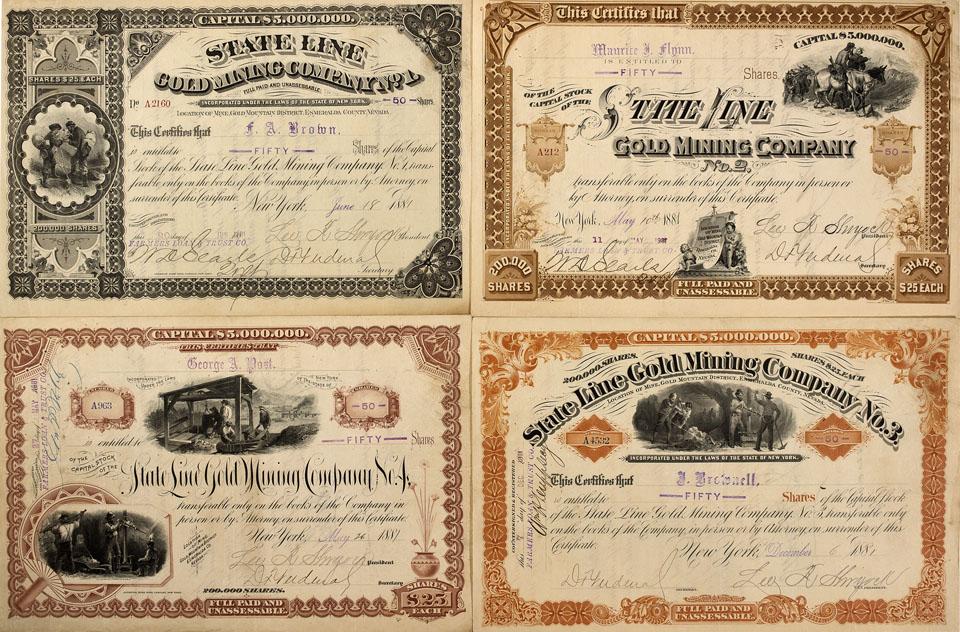 CAPITAL $5,000,000.
STATE LINE
GOLD MINING COMPANY No. 1.
FULL PAID AND UNASSESSABLE
SHARES $25 EACH
No A2160
INCORPORATED UNDER THE LAWS OF THE STATE OF NEW YORK.
50 Shares
LOCATION OF MINE, GOLD MOUNTAIN DISTRICT, ESMERALDA COUNTY, NEVADA.
This Certifies that F. A. Brown.
is entitled to FIFTY Shares of the Capital
Stock of the State Line Gold Mining Company No. 1, trans-
ferable only on the books of the Company in person or by Attorney, on
surrender of this Certificate.
New York, June 18 1881
200,000 SHARES
FARMERS LOAN & TRUST CO.
President
Secretary
This Certifies that
CAPITAL $5,000,000.
Maurice J. Flynn.
IS ENTITLED TO
FIFTY Shares
OF THE CAPITAL STOCK OF THE
STATE LINE
A212
50
GOLD MINING COMPANY
No. 2.
transferable only on the books of the Company in person or
by Attorney, on surrender of this Certificate.
New York, May 10th 1881
11 MAY 1881
President
FARMERS LOAN & TRUST CO.
Secretary
200,000 SHARES
SHARES $25 EACH
FULL PAID AND UNASSESSABLE
CAPITAL $5,000,000.
THIS CERTIFIES THAT
George A. Post.
INCORPORATED UNDER THE LAWS OF THE STATE OF NEW YORK
A963
50
is entitled to FIFTY Shares
OF THE CAPITAL STOCK OF THE
State Line Gold Mining Company No. 4,
transferable only on the books of the Company in
person or by Attorney, on surrender of this Certificate.
New York, May 26 1881
President
Secretary
200,000 SHARES.
SHARES $25 EACH
FULL PAID AND UNASSESSABLE.
CAPITAL $5,000,000.
200,000 SHARES.
SHARES $25 EACH
State Line Gold Mining Company No. 3.
LOCATION OF MINE, GOLD MOUNTAIN DISTRICT, ESMERALDA COUNTY, NEVADA.
A4532
50
INCORPORATED UNDER THE LAWS OF THE STATE OF NEW YORK.
This Certifies that J. Brownell.
is entitled to FIFTY Shares of the Capital Stock
of the State Line Gold Mining Company, No. 3, transferable only
on the books of the Company, in person or by Attorney, on surrender of this
Certificate.
New York, December 6 1881
COUNTERSIGNED & REGISTERED
FARMERS LOAN & TRUST CO.
FULL PAID AND UNASSESSABLE.